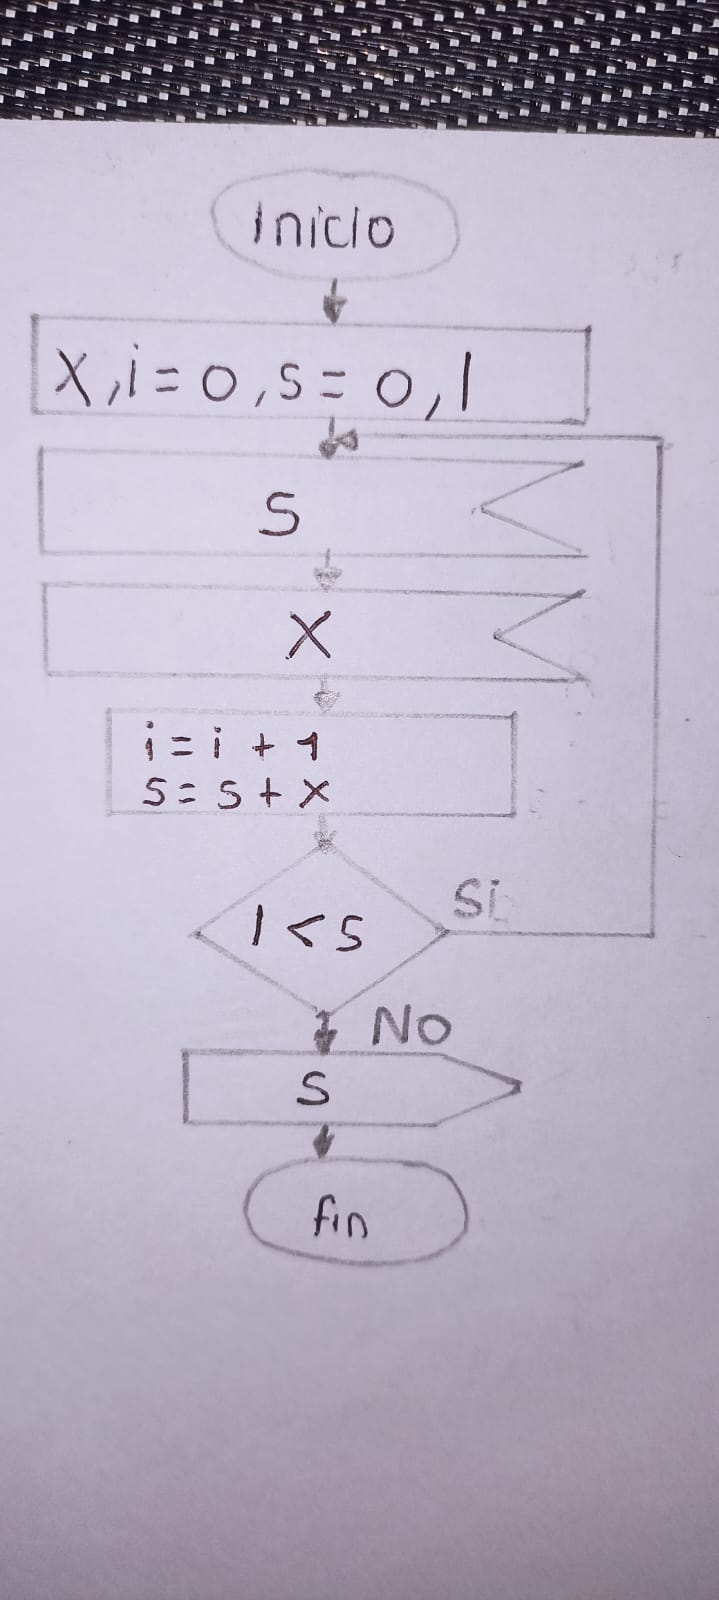 Inicio
X,i=0,s=0,1
S
X
i=i+1
s=s+x
1<5
Si
NO
S
fin